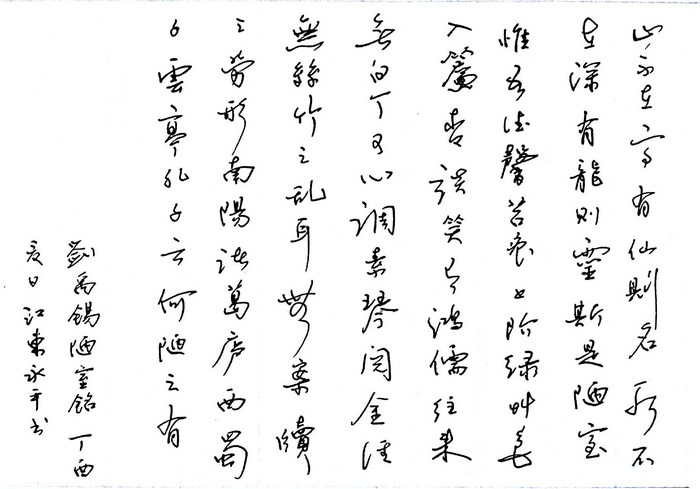 山不在高有仙則名水不
在深有龍則靈斯是陋室
惟吾德馨苔痕上阶绿艸色
入簾青談笑有鴻儒往来
無白丁可以調素琴閱金経
無絲竹之乱耳無案牘
之勞形南陽諸葛庐西蜀
子雲亭孔子云何陋之有
劉禹錫陋室銘丁酉
夏日江東永平书